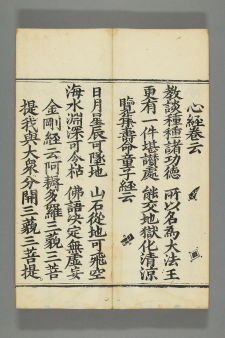 心經卷云
教談種種諸功德　所以名爲大法王
更有一件堪讃處　能交地獄化清涼
壽命童子經云
日月星辰可墜地　山石從地可飛空
海水淵深可令枯　佛語決定無虛妄
金剛經云阿耨多羅三藐三菩
提我與大衆分開三藐三菩提